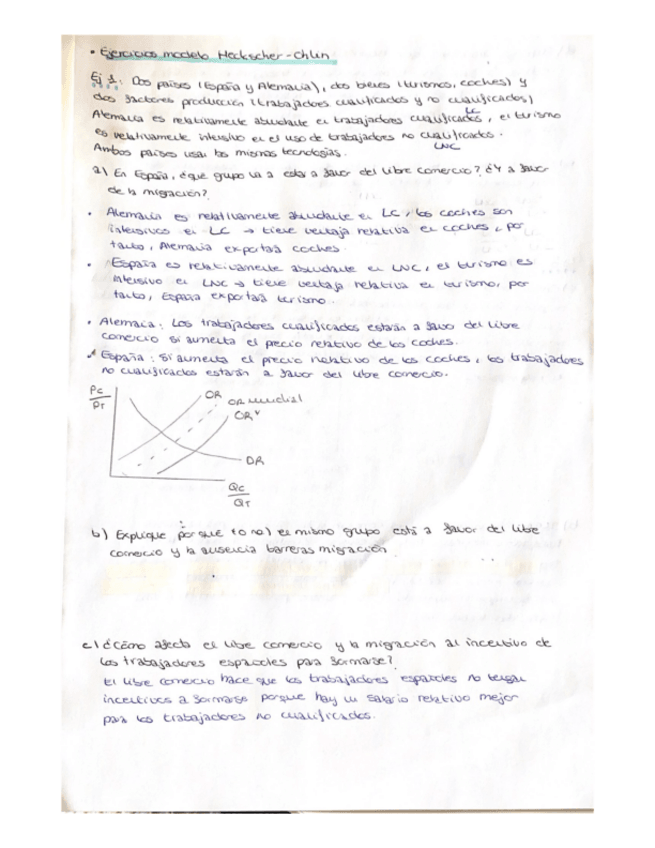 • Ejercicios modelo Heckscher-Ohlin
Ej 1: Dos países (España y Alemania), dos bienes (turismos, coches) y
dos factores producción (trabajadores cualificados y no cualificados)
Alemania es relativamente abundante en trabajadores cualificados, el turismo
LC
es relativamente intensivo en el uso de trabajadores no cualificados.
LNC
Ambos países usan las mismas tecnologías.
a) En España, ¿qué grupo va a estar a favor del libre comercio? ¿Y a favor
de la migración?
• Alemania es relativamente abundante en LC, los coches son
intensivos en LC → tiene ventaja relativa en coches, por
tanto, Alemania exportará coches.
• España es relativamente abundante en LNC, el turismo es
intensivo en LNC → tiene ventaja relativa en turismo, por
tanto, España exportará turismo.
• Alemania: Los trabajadores cualificados estarán a favor del libre
comercio si aumenta el precio relativo de los coches.
España: Si aumenta el precio relativo de los coches, los trabajadores
no cualificados estarán a favor del libre comercio.
Pc
PT
OR
OR mundial
OR*
DR
Qc
QT
b) Explique por qué (o no) el mismo grupo está a favor del libre
comercio y la ausencia barreras migración
c) ¿Cómo afecta el libre comercio y la migración al incentivo de
los trabajadores españoles para formarse?
El libre comercio hace que los trabajadores españoles no tengan
incentivos a formarse porque hay un salario relativo mejor
para los trabajadores no cualificados.